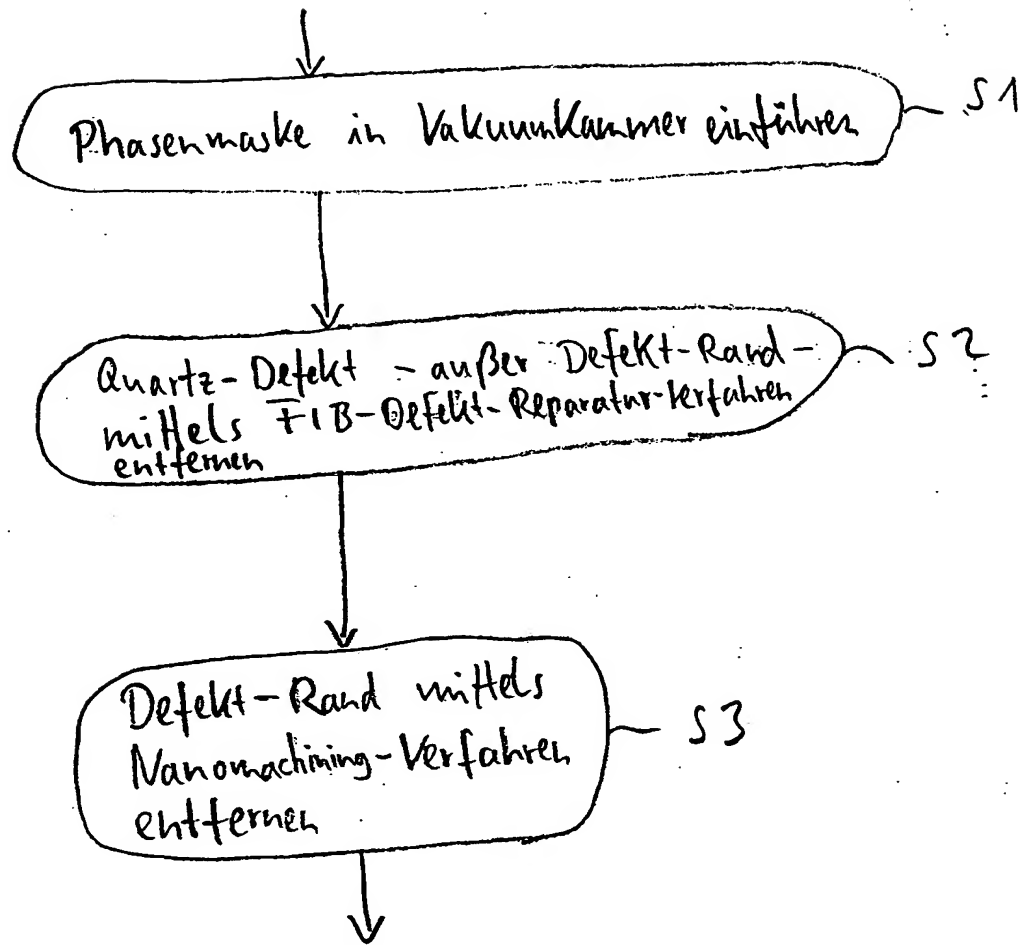 Phasenmaske in Vakuumkammer einführen
S1
Quartz-Defekt - außer Defekt-Rand-
mittels FIB-Defekt-Reparatur-Verfahren
entfernen
S2
Defekt-Rand mittels
Nanomachining-Verfahren
entfernen
S3